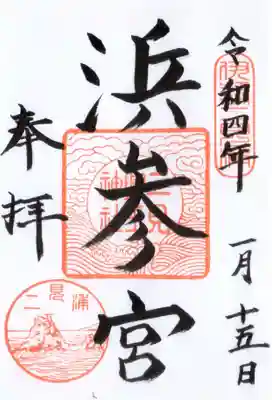 令和四年
一月十五日
浜参宮
奉拝
二見
神社
二見浦